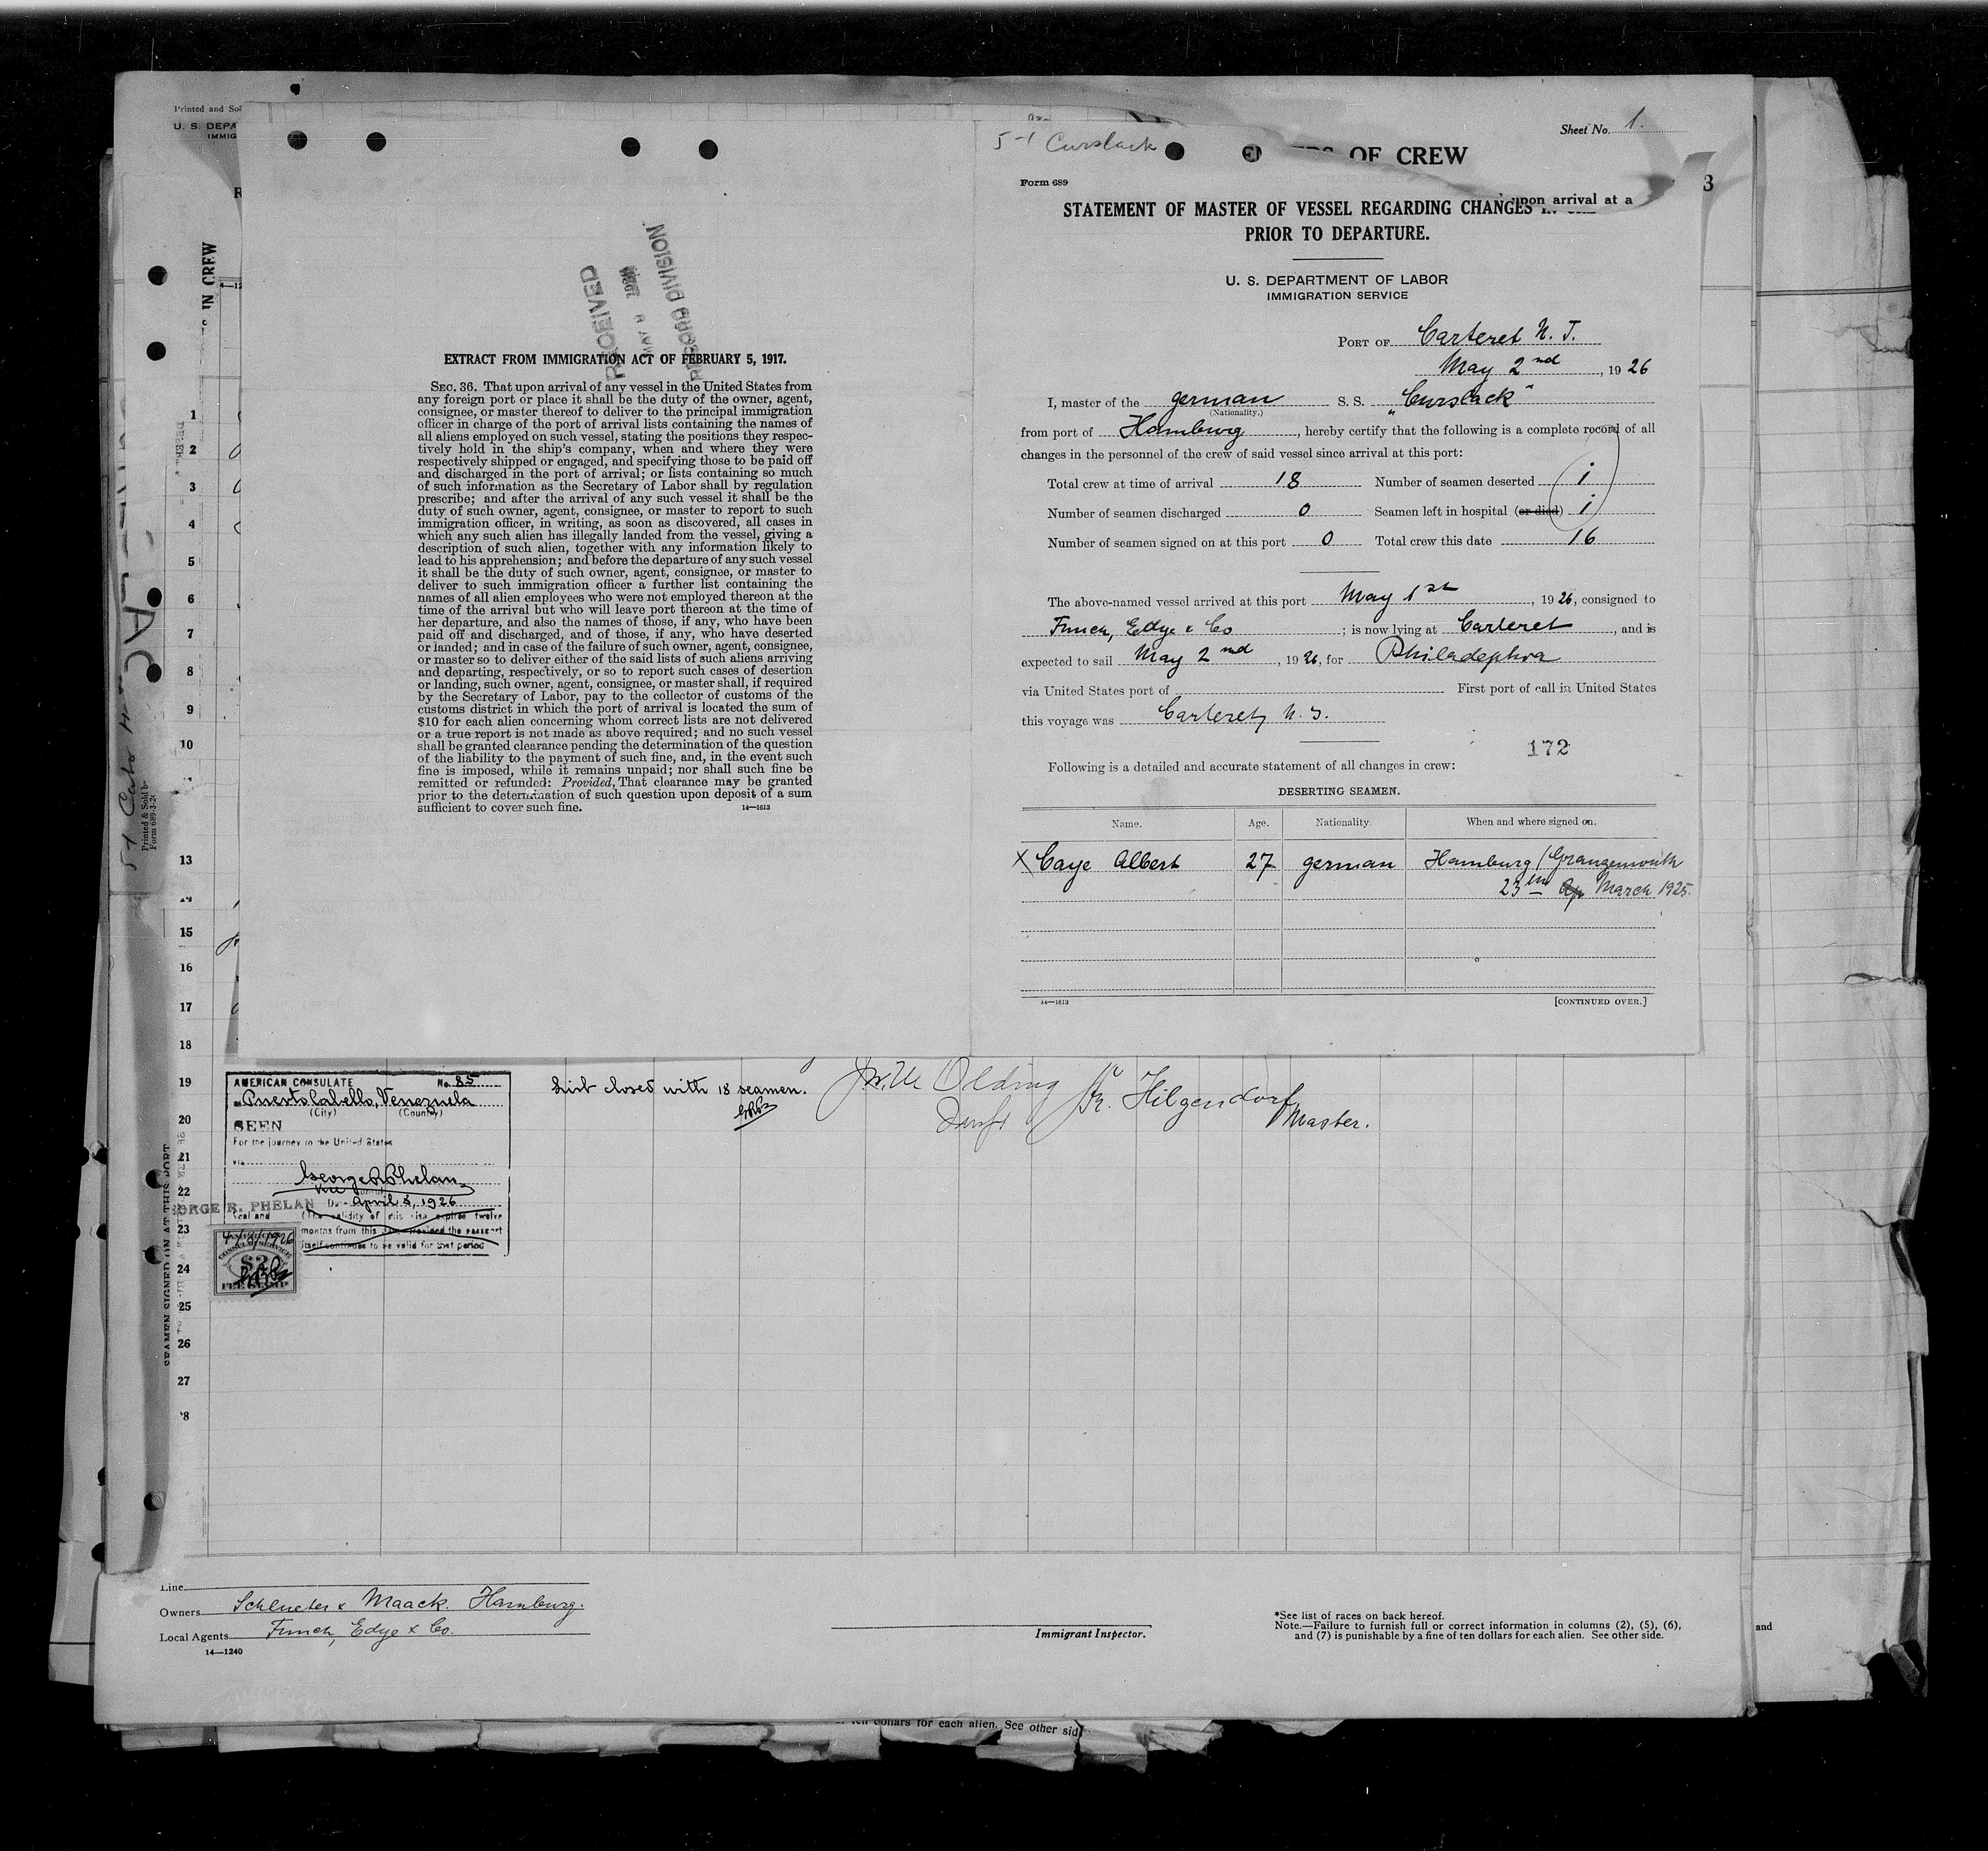 Printed and Sol
U. S. DEPA
IMMIG
IN CREW
Sheet No. 1.
5-1 Curslack
OF CREW
3
upon arrival at a
Form 689
STATEMENT OF MASTER OF VESSEL REGARDING CHANGES IN
PRIOR TO DEPARTURE.
U. S. DEPARTMENT OF LABOR
IMMIGRATION SERVICE
PORT OF Carteret N. J.
May 2nd, 1926
I, master of the german S. S. „Curslack"
(Nationality.)
from port of Hamburg, hereby certify that the following is a complete record of all
changes in the personnel of the crew of said vessel since arrival at this port:
Total crew at time of arrival 18 Number of seamen deserted 1
Number of seamen discharged 0 Seamen left in hospital (or died) 1
Number of seamen signed on at this port 0 Total crew this date 16
The above-named vessel arrived at this port May 1st, 1926, consigned to
Funch, Edye & Co; is now lying at Carteret, and is
expected to sail May 2nd, 1926, for Philadephia
via United States port of First port of call in United States
this voyage was Carteret, N. J.
172
Following is a detailed and accurate statement of all changes in crew:
DESERTING SEAMEN.
Name. Age. Nationality. When and where signed on.
X Caye Albert 27 german Hamburg / Grangemouth
23th Ap March 1925.
14—1613 [CONTINUED OVER.]
RECEIVED
MAY 6 1926
RECORD DIVISION
EXTRACT FROM IMMIGRATION ACT OF FEBRUARY 5, 1917.
SEC. 36. That upon arrival of any vessel in the United States from
any foreign port or place it shall be the duty of the owner, agent,
consignee, or master thereof to deliver to the principal immigration
officer in charge of the port of arrival lists containing the names of
all aliens employed on such vessel, stating the positions they respec-
tively hold in the ship's company, when and where they were
respectively shipped or engaged, and specifying those to be paid off
and discharged in the port of arrival; or lists containing so much
of such information as the Secretary of Labor shall by regulation
prescribe; and after the arrival of any such vessel it shall be the
duty of such owner, agent, consignee, or master to report to such
immigration officer, in writing, as soon as discovered, all cases in
which any such alien has illegally landed from the vessel, giving a
description of such alien, together with any information likely to
lead to his apprehension; and before the departure of any such vessel
it shall be the duty of such owner, agent, consignee, or master to
deliver to such immigration officer a further list containing the
names of all alien employees who were not employed thereon at the
time of the arrival but who will leave port thereon at the time of
her departure, and also the names of those, if any, who have been
paid off and discharged, and of those, if any, who have deserted
or landed; and in case of the failure of such owner, agent, consignee,
or master so to deliver either of the said lists of such aliens arriving
and departing, respectively, or so to report such cases of desertion
or landing, such owner, agent, consignee, or master shall, if required
by the Secretary of Labor, pay to the collector of customs of the
customs district in which the port of arrival is located the sum of
$10 for each alien concerning whom correct lists are not delivered
or a true report is not made as above required; and no such vessel
shall be granted clearance pending the determination of the question
of the liability to the payment of such fine, and, in the event such
fine is imposed, while it remains unpaid; nor shall such fine be
remitted or refunded: Provided, That clearance may be granted
prior to the determination of such question upon deposit of a sum
sufficient to cover such fine.
14—1613
1
2
3
4
5
6
7
8
9
10
13
14
15
16
17
18
19
20
21
22
23
24
25
26
27
Printed & Sold b
Form 689-3-2
SEAMEN SIGNED ON AT THIS PORT
AMERICAN CONSULATE No. 85
Puerto Cabello, Venezuela
(City) (County)
SEEN
For the journey to the United States
via
George R Phelan
Vice
April 5, 1926
ORGE R. PHELAN
Seal and (The validity of this visa expires twelve
months from this date provided the passport
itself continues to be valid for that period
4/5/1926
CONSULAR SERVICE
$2
FEE STAMP
List closed with 18 seamen.
GRP
Olding
Hilgendorf
Master.
Line
Owners Schlueter & Maack. Hamburg.
Local Agents Funch, Edye & Co.
14—1240
Immigrant Inspector.
*See list of races on back hereof.
Note.—Failure to furnish full or correct information in columns (2), (5), (6),
and (7) is punishable by a fine of ten dollars for each alien. See other side.
and
ten dollars for each alien. See other sid